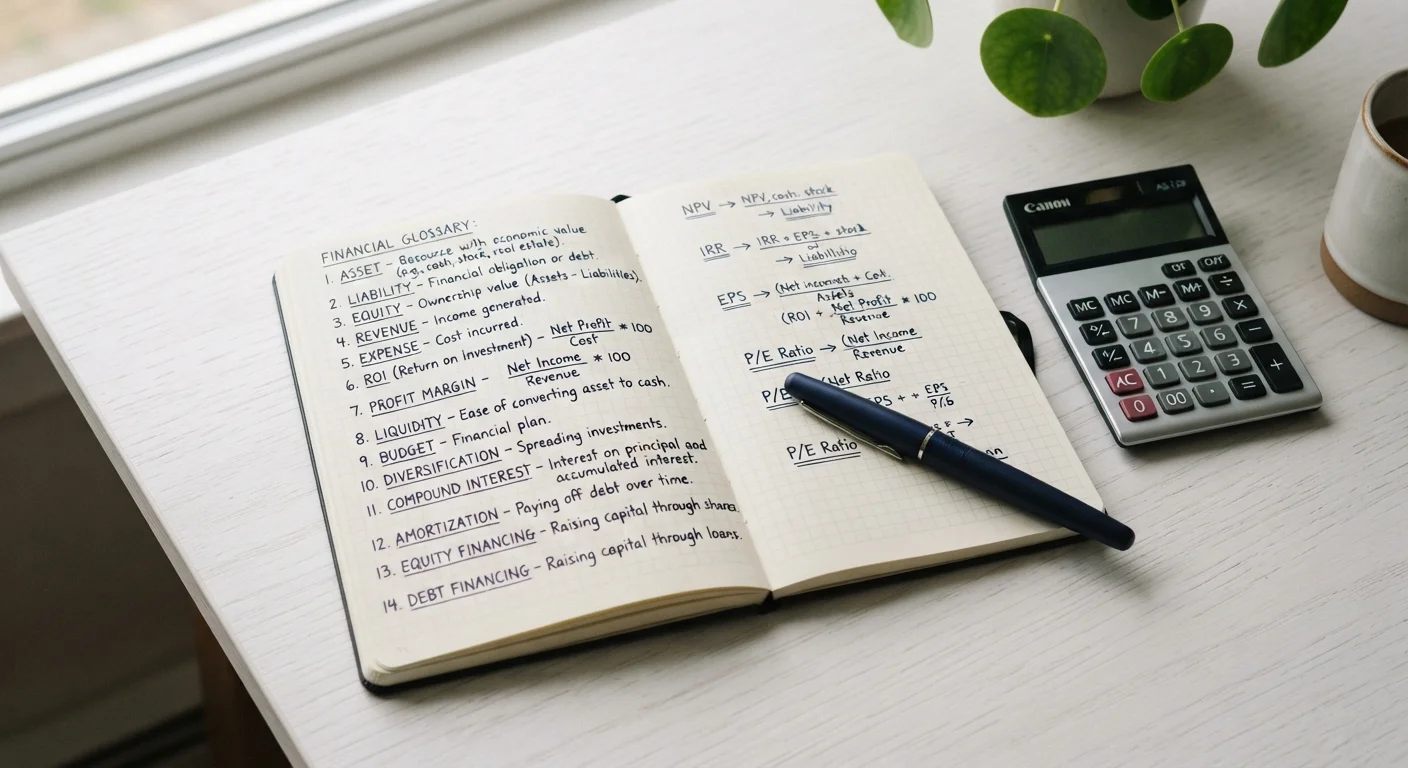 FINANCIAL GLOSSARY:
1. ASSET – Resource with economic value
(e.g, cash, stock, real estate).
2. LIABILITY – Financial obligation or debt.
3. EQUITY – Ownership value (Assets – Liabilities).
4. REVENUE – Income generated.
5. EXPENSE – Cost incurred.
6. ROI (Return on Investment) – Net Profit * 100
Cost
7. PROFIT MARGIN – Net Income * 100
Revenue
8. LIQUIDITY – Ease of converting asset to cash.
9. BUDGET – Financial plan.
10. DIVERSIFICATION – Spreading investments.
11. COMPOUND INTEREST – Interest on principal and
accumulated interest.
12. AMORTIZATION – Paying off debt over time.
13. EQUITY FINANCING – Raising capital through shares.
14. DEBT FINANCING – Raising capital through loans.
NPV → NPV, cash. stock
→ Liability
IRR → IRR + EPS + stock
→
EPS → (Net + Cost.
Assets
(ROI + Net Profit * 100
Revenue
P/E Ratio → (Net Income
Revenue
P/E Ratio
EPS
P/E Ratio
Canon
MC MC M- M+ ÷
7 8 9 ×
4 5 6 −
AC 1 2 3 +
0 00 . =